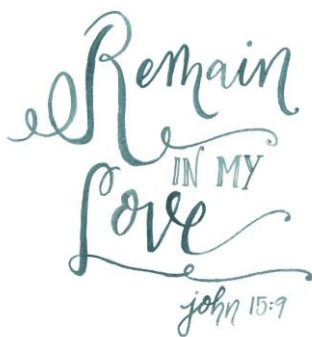 Remain
IN MY
Love
john 15:9